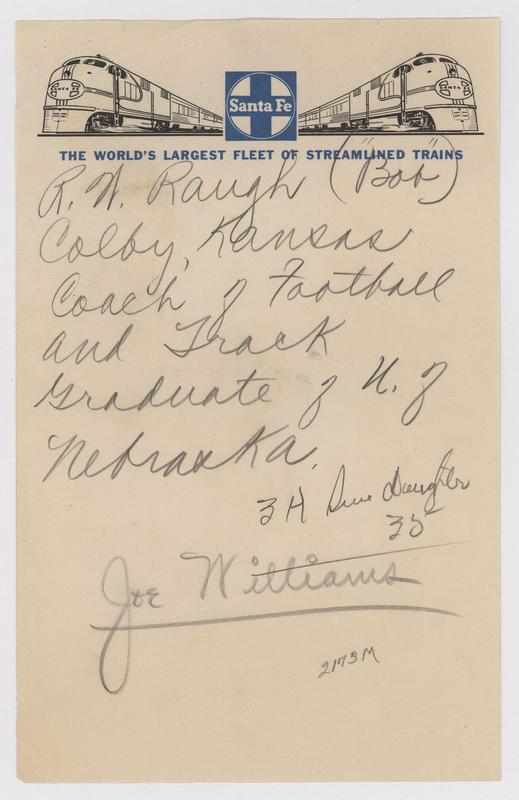 SANTA FE
SANTA FE
Santa Fe
THE WORLD'S LARGEST FLEET OF STREAMLINED TRAINS
R. W. Raugh ("Bob")
Colby, Kansas
Coach of Football
and Track
Graduate of U. of
Nebraska.
3 H Daughter
35
Joe Williams
2173M